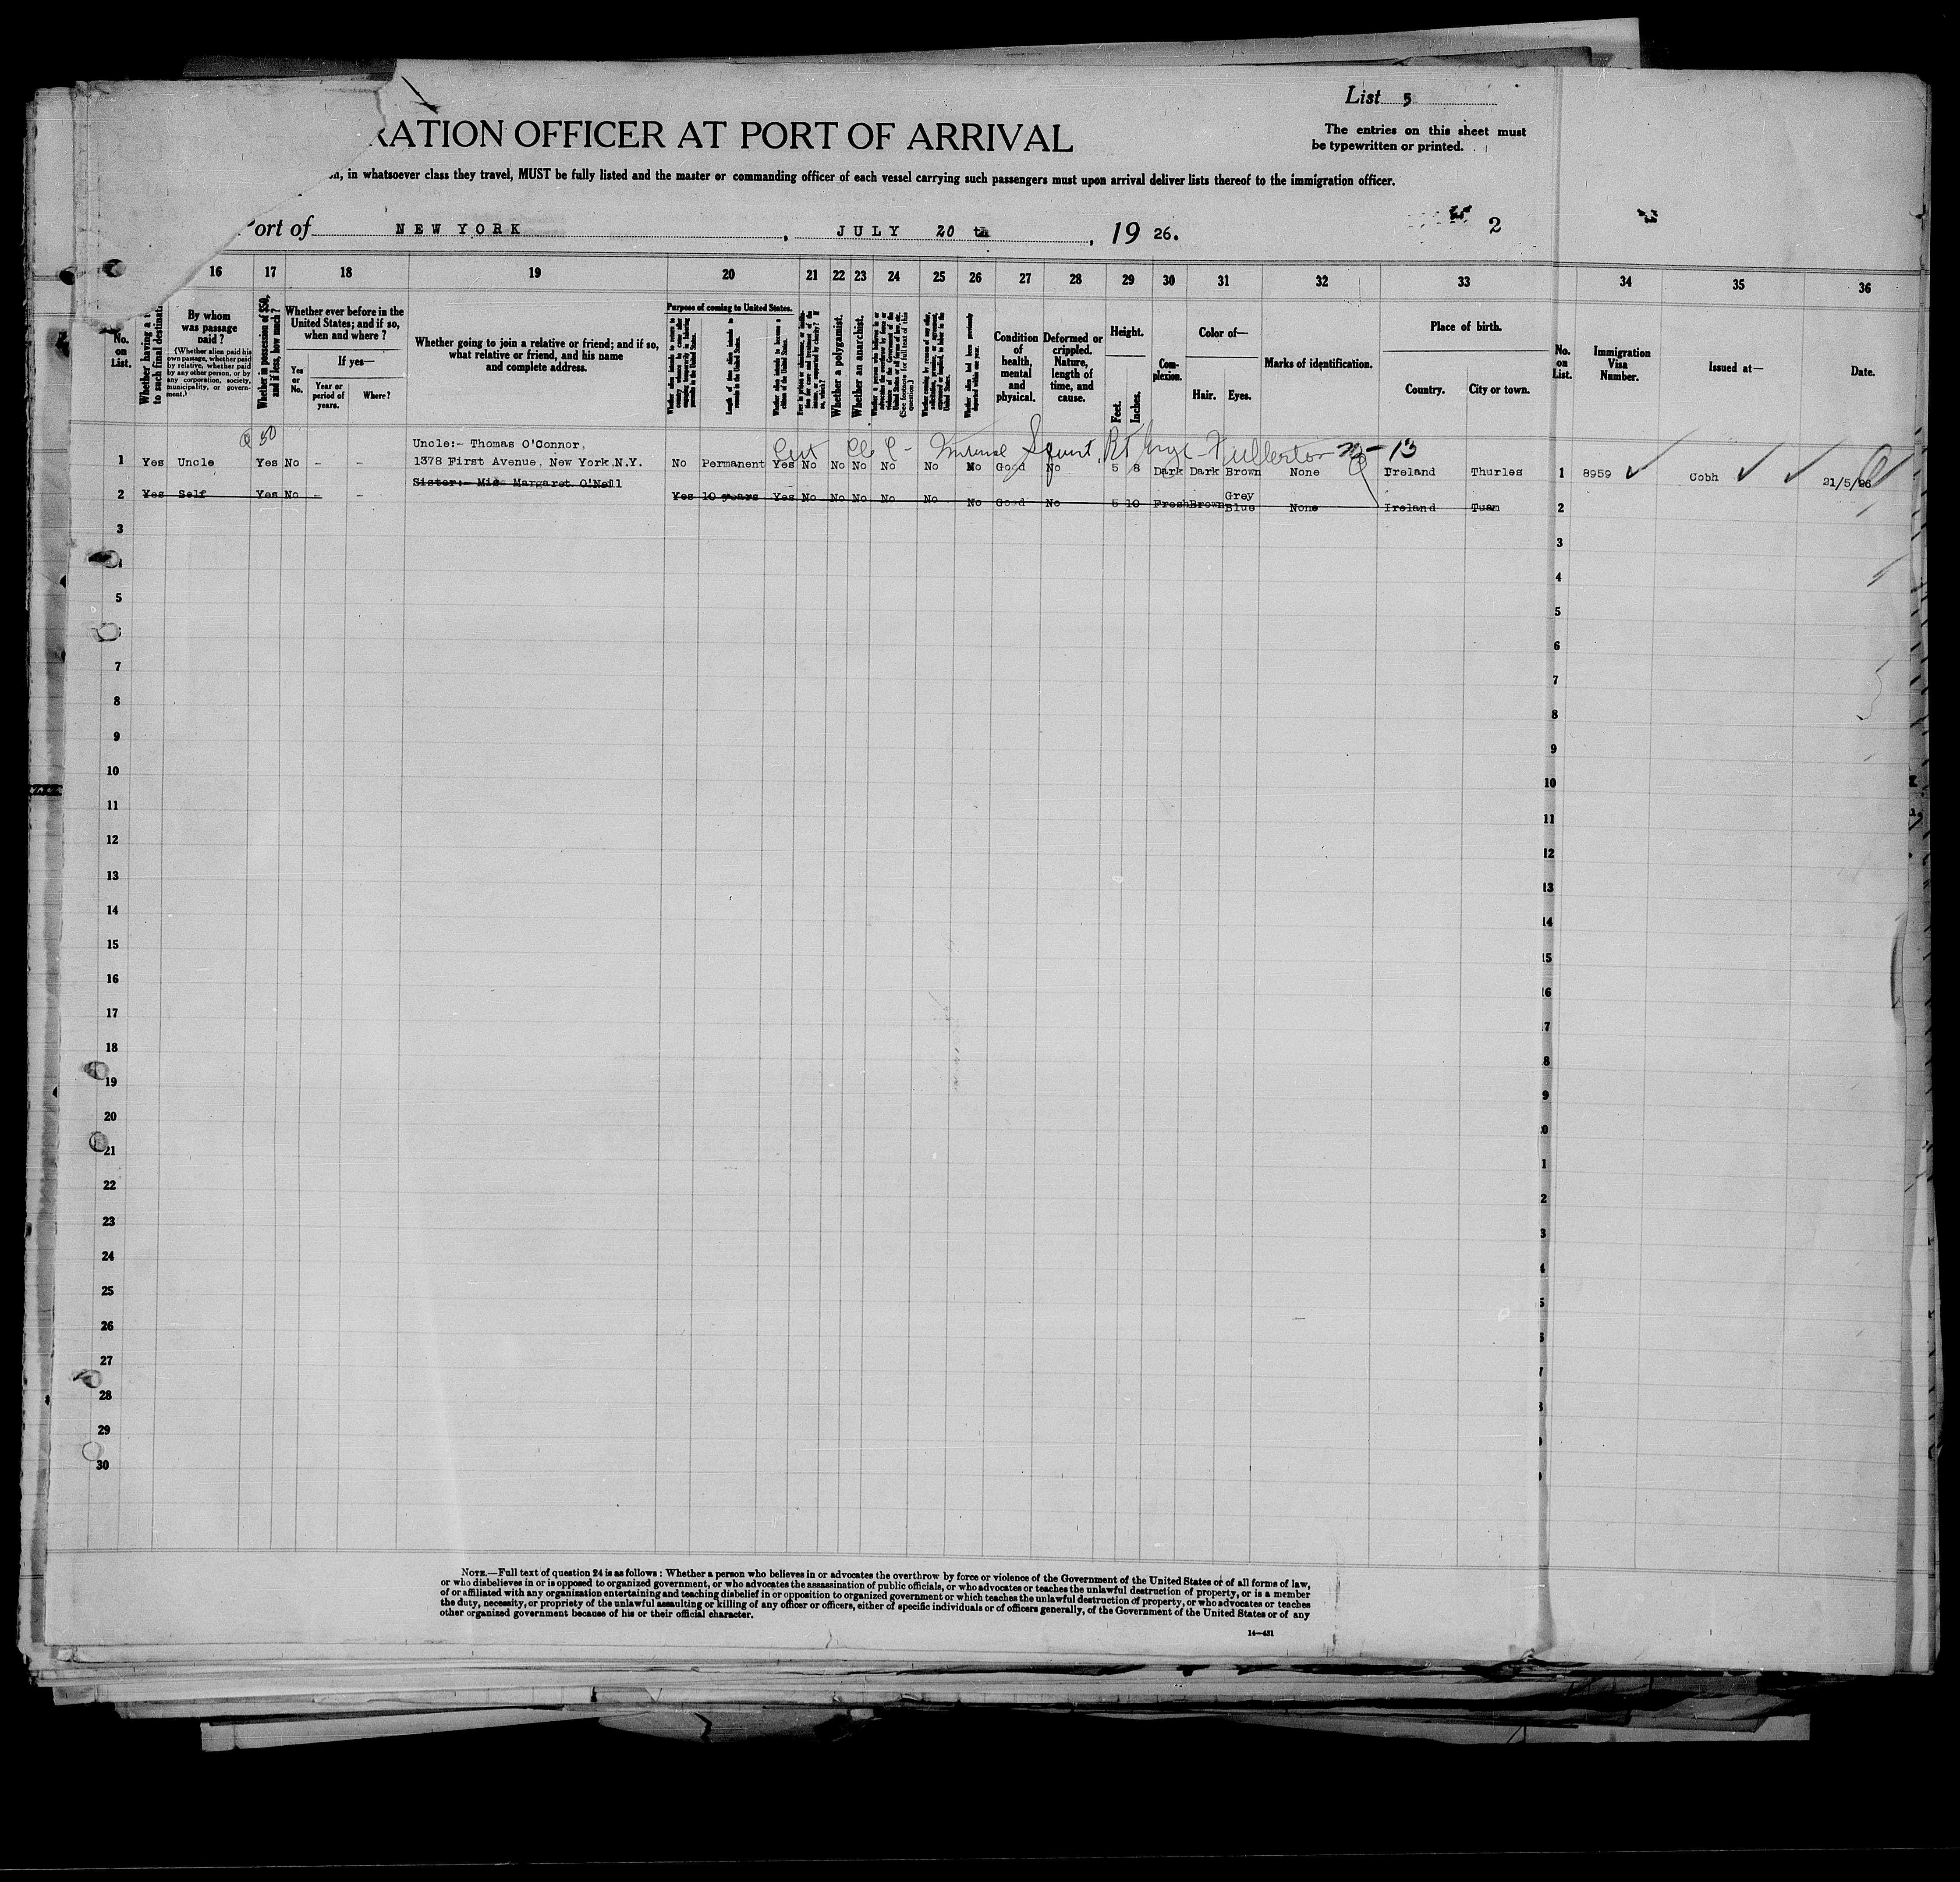 List 5
RATION OFFICER AT PORT OF ARRIVAL
The entries on this sheet must
be typewritten or printed.
in whatsoever class they travel, MUST be fully listed and the master or commanding officer of each vessel carrying such passengers must upon arrival deliver lists thereof to the immigration officer.
Port of NEW YORK, JULY 20 th, 19 26.
2
16 17 18 19 20 21 22 23 24 25 26 27 28 29 30 31 32 33 34 35 36
No. on List.
Whether having a
to such final destinati
By whom was passage paid?
(Whether alien paid his own passage, whether paid by relative, whether paid by any other person, or by any corporation, society, municipality, or government.)
Whether in possession of $50, and if less, how much?
Whether ever before in the United States; and if so, when and where?
Yes or No.
If yes—
Year or period of years.
Where?
Whether going to join a relative or friend; and if so, what relative or friend, and his name and complete address.
Purpose of coming to United States.
Length of time alien intends to remain in the United States.
Whether alien intends to become a citizen of the United States.
Whether a polygamist.
Whether an anarchist.
(See footnote for full text of this question.)
Condition of health, mental and physical.
Deformed or crippled. Nature, length of time, and cause.
Height.
Feet. Inches.
Complexion.
Color of—
Hair. Eyes.
Marks of identification.
Place of birth.
Country. City or town.
No. on List.
Immigration Visa Number.
Issued at—
Date.
50
Cert Squint, Rt Fullerton - 13
Uncle:- Thomas O'Connor,
1 Yes Uncle Yes No - - 1378 First Avenue, New York,N.Y. No Permanent Yes No No No No No No Good No 5 8 Dark Dark Brown None Ireland Thurles 1 8959 Cobh 21/5/26
Sister:- Miss Margaret O'Neill
2 Yes Self Yes No - - Yes 10 years Yes No No No No No No Good No 5 10 Fresh Brown Grey Blue None Ireland Tuam 2
3 3
4
5 5
6
7 7
8 8
9 9
10 10
11 11
12 12
13 13
14 14
15 15
16 16
17 17
18 8
19 9
20 0
21 1
22 2
23 3
24 4
25 5
26 6
27 7
28
29
30
NOTE.—Full text of question 24 is as follows: Whether a person who believes in or advocates the overthrow by force or violence of the Government of the United States or of all forms of law,
or who disbelieves in or is opposed to organized government, or who advocates the assassination of public officials, or who advocates or teaches the unlawful destruction of property, or is a member
of or affiliated with any organization entertaining and teaching disbelief in or opposition to organized government or which teaches the unlawful destruction of property, or who advocates or teaches
the duty, necessity, or propriety of the unlawful assaulting or killing of any officer or officers, either of specific individuals or of officers generally, of the Government of the United States or of any
other organized government because of his or their official character.
14—431